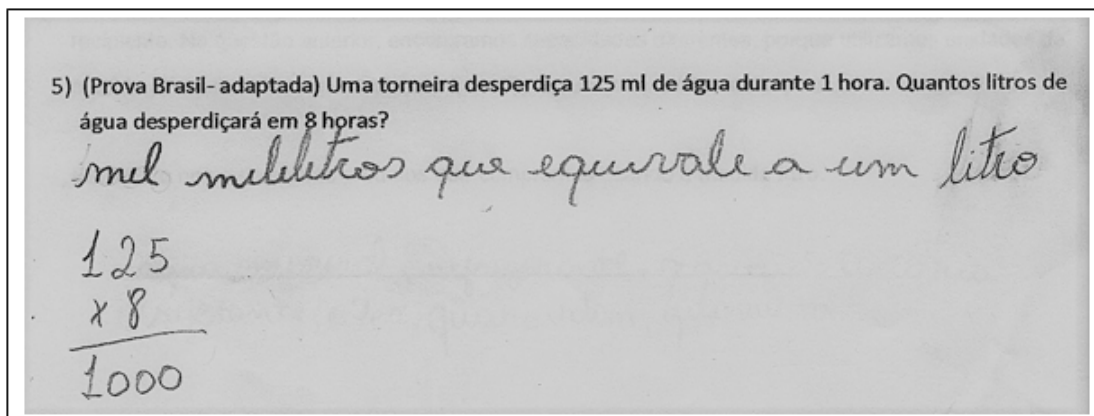 5) (Prova Brasil- adaptada) Uma torneira desperdiça 125 ml de água durante 1 hora. Quantos litros de
água desperdiçará em 8 horas?
mil mililitros que equivale a um litro
125
x 8
1000